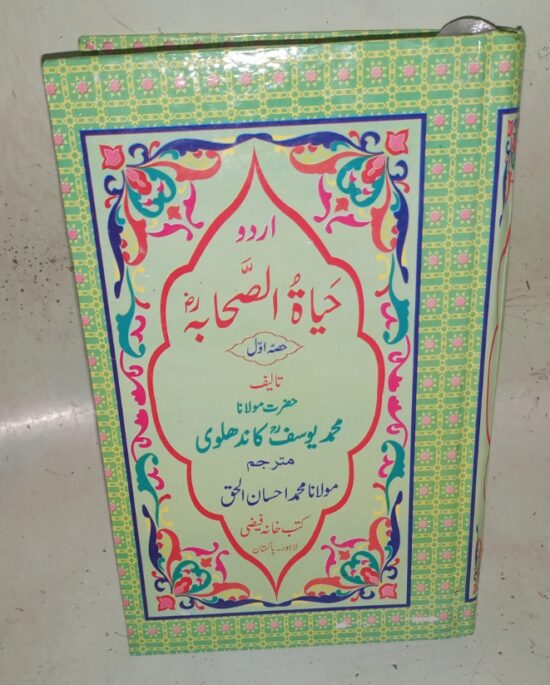 اردو
حیاۃُ الصَّحابہؓ
حصہ اوّل
تالیف
حضرت مولانا
محمد یوسفؒ کاندھلوی
مترجم
مولانا محمد احسان الحق
کتب خانہ فیضی
لاہور - پاکستان